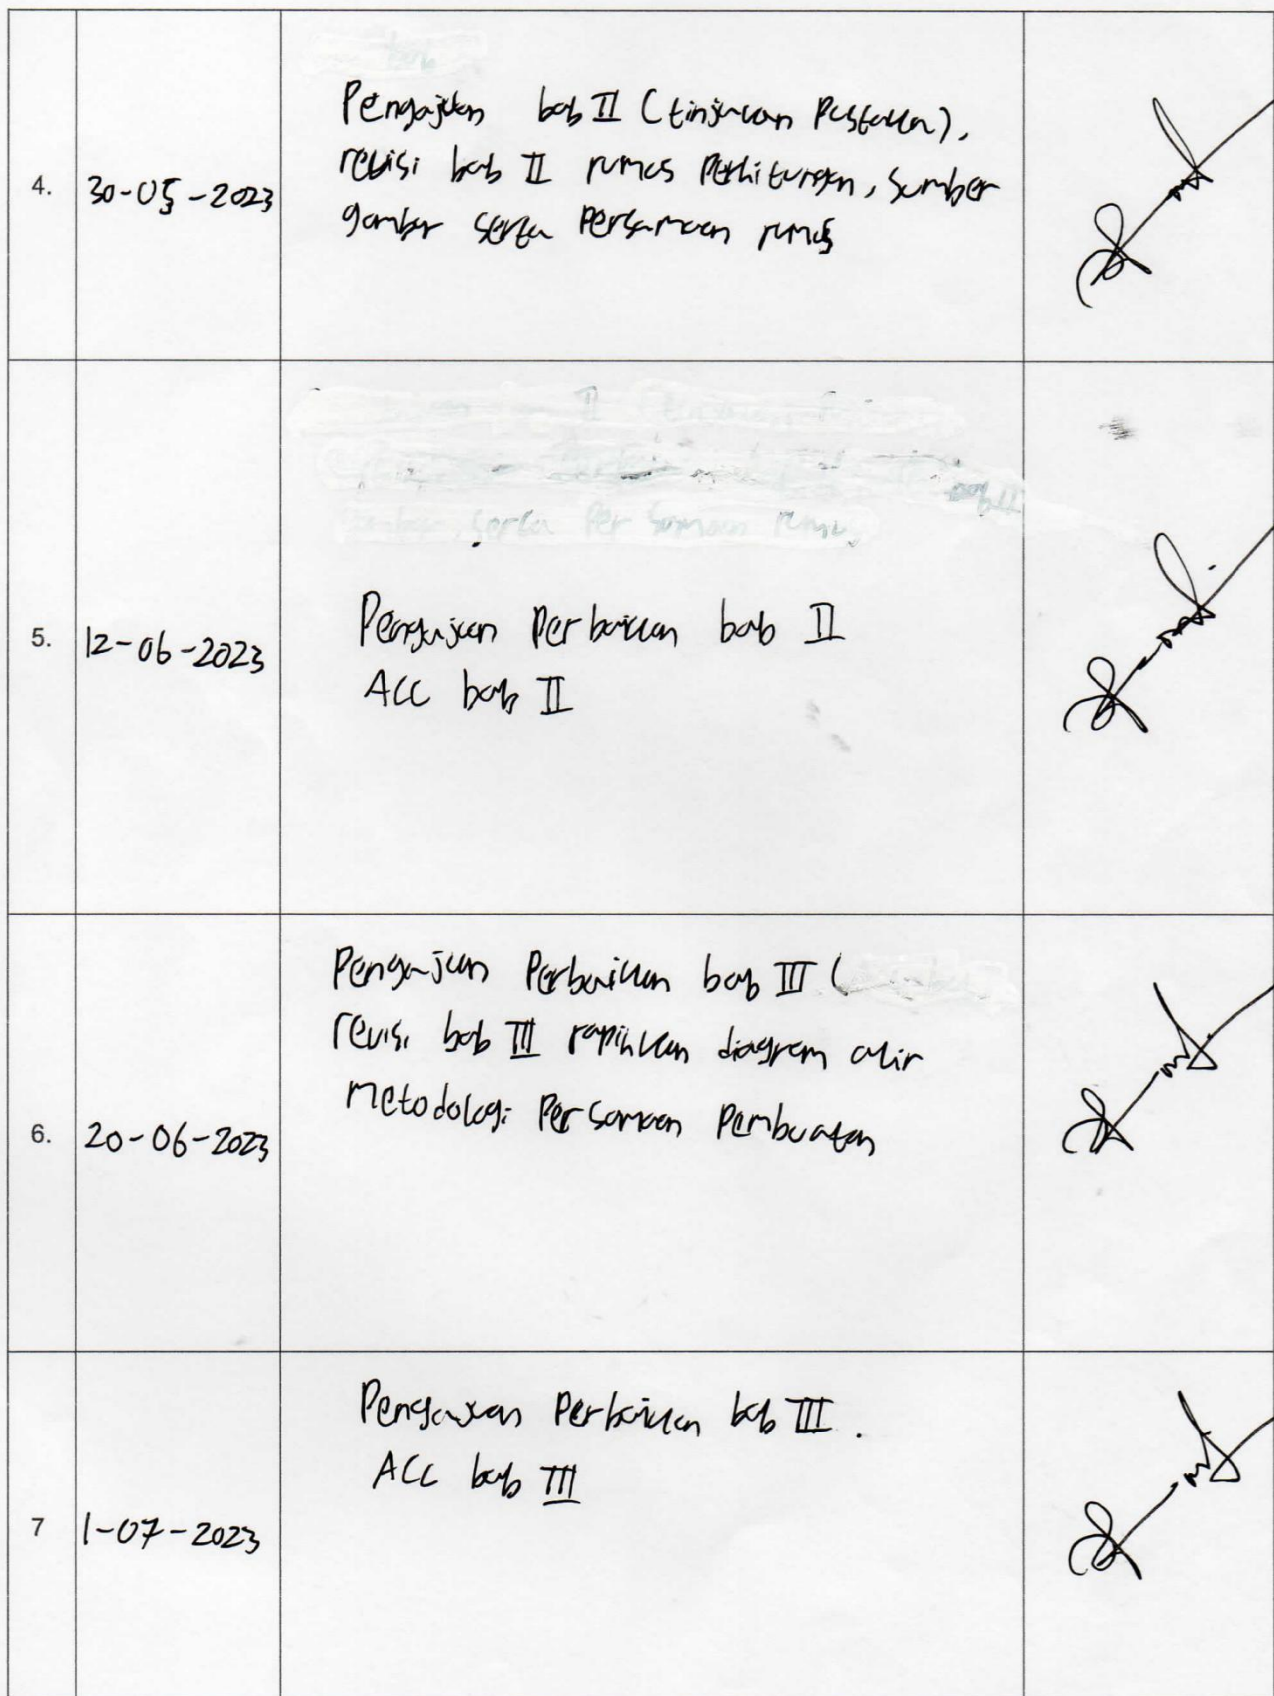 4.
30-05-2023
Pengajuan bab II (tinjauan Pustaka),
revisi bab II rumus Perhitungan, Sumber
gambar serta Persamaan rumus
5.
12-06-2023
serta Persamaan rumus
Pengajuan Perbaikan bab II
ACC bab II
6.
20-06-2023
Pengajuan Perbaikan bab III (
revisi bab III rapihkan diagram alir
metodologi Persamaan Pembuatan
7
1-07-2023
Pengajuan Perbaikan bab III.
ACC bab III